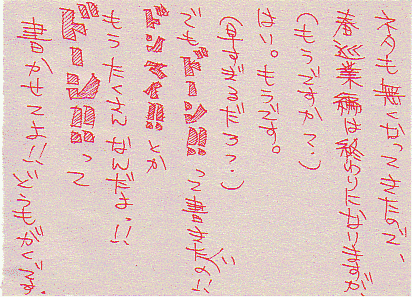 ネタも無くなってきたので、
春巡業編は終りになりますが、
(もうですかて・)
はい。もうです。
(早すぎるだろって・)
でも ドーン!! って書きたい
ドンマイ!! とか
もう たくさん なんだよ!!
ドーン!! って
書かせてよ!! どうもがくです。